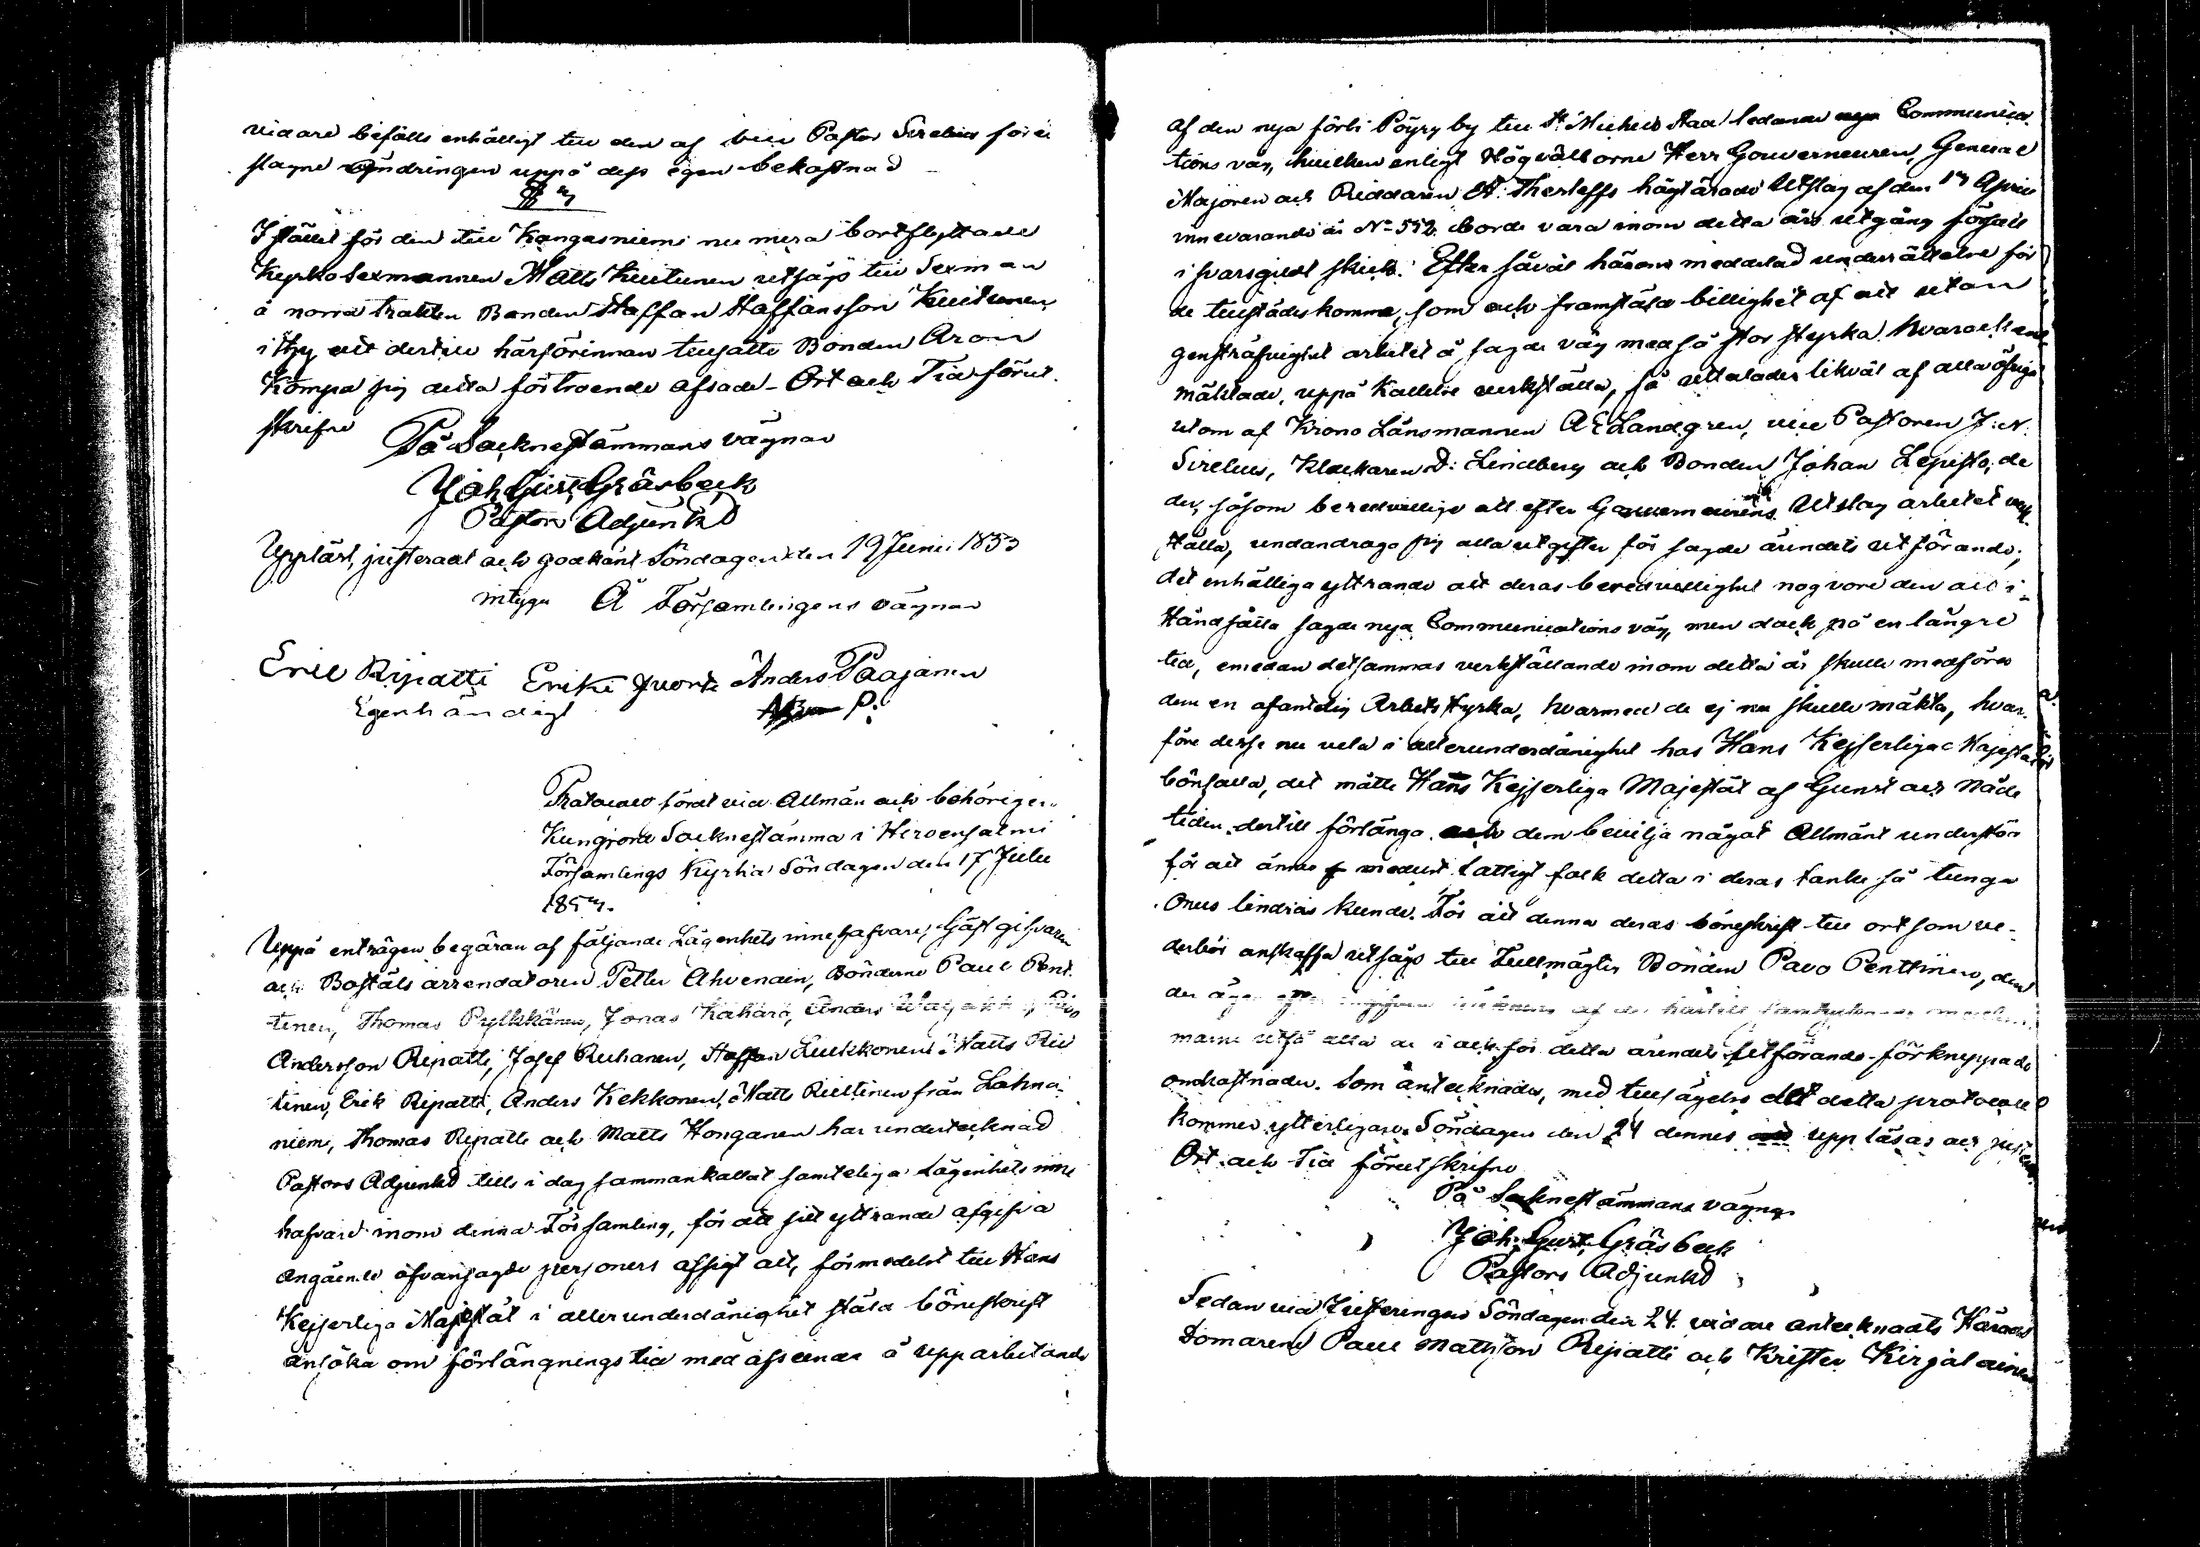 vidare bifälls enhälligt till den af vice Pastor Sirelius före
slagne ändringen uppå dess egen bekostnad
§ 3
I stället för den till Kangasniemi numera bortflyttade
Kyrko Sexmannen Matts Kuitunen utsågs till Sexman
å norra trakten Bonden Staffan Staffansson Kuitunen
i thy att dertill härförinnan tillsatte Bonden Aron
Kompa sig detta förtroende afsade - Ort och Tid förut
skrifne
På Socknestämmans vägnar
Joh Gust Gråsbeck
Pastors Adjunkt
Uppläst, justeradt och godkänt Söndagen den 19 Junii 1853
intyga Å Församlingens vägnar
Eric Ripatti Erkki Anders Paajanen
Egenhändigt P.
Protocoll fördt vid Allmän och behörigen
Kungjord Socknestämma i Hirvensalmi
Församlings Kyrka Söndagen den 17 Julii
1853.
Uppå enträgen begäran af följande Lägenhets innehafvare, Gästgifvaren
och Boställs arrendatoren Petter Ahvenain, Bönderne Paul Pent
tinen, Thomas Pylkkänen, Jonas Kähärä, Anders
Andersson Ripatti, Josef Ruhanen, Staffan Luukkonen Matts Riit
tinen, Erik Ripatti, Anders Kekkonen, Matts Riittinen från Lahna
niem, Thomas Ripatti och Matts Honganen har undertecknad
Pastors Adjunkt tills i dag sammankallat samtelige Lägenhets inne
hafvare inom denna Församling, för att sitt yttrande afgifva
angående ofvansagde personers afsigt att, förmedelst till Hans
Kejserliga Majestät i allerunderdånighet ställd böneskrift
ansöka om förlängningstid med afseende å upparbetande
af den nya förbi Pöyry by till St Michels stad ledande Communica
tions väg, hvilken enligt Högvälborne Herr Gouverneuren, General
Majoren och Riddaren A. Thesleffs högtärade Utslag af den 17 April
innevarande år No 552 borde vara inom detta års utgång försatt
i farsgildt skick. Efter såväl härom meddelad underrättelse för
de tillstädeskomme, som och framställd billighet af att utan
genstrifvighet arbetet å sagde väg med så stor styrka hvar och en
mäktade, uppå Kallelse verkställa, så uttalades likväl af alla öfriga
utom af Krono Länsmannen A E Landgren, vice Pastoren J: N:
Sirelius, Klockaren D: Lindberg och Bonden Johan Lepistö, de
der, såsom beredvillige att efter Gouverneurens Utslag arbetet verk
ställa, undandrogo sig alla utgifter för sagde ärendets utförande,
det enhälliga yttrande att deras beredvillighet nog vore den att i
ständsätta sagde nya Communications väg, men dock på en längre
tid, emedan detsammas verkställande inom detta år skulle medföra
dem en ofantelig Arbetsstyrka, hvarmed de ej skulle mäkta, hvar-
före desse nu vela i allerunderdånighet hos Hans Kejserliga Majestät
bönfalla, det måtte Hans Kejserliga Majestät af Gunst och Nåde
tiden dertill förlänga dem bevilja något Allmänt understöd
för att ännu medelst fattigt folk detta i deras tanke så tunga
Onus lindras kunde. För att denna deras böneskrift till ort som ve-
derbör anskaffa utsågs till Fullmägtig Bonden Pavo Penttinen, den
der äger efter af
manne utfå alla de i och för detta ärendets utförande förknippade
omkostnader. Som antecknades, med tillsägelse att detta protocoll
kommer ytterligare Söndagen den 24 dennes uppläsas och justeras
Ort och Tid förutskrifne
På Socknestämmans vägnar
Joh. Gust. Gråsbeck
Pastors Adjunkt
Sedan vid Justeringen Söndagen den 24 vidare antecknats Härads
Domarene Paul Mattsson Ripatti och Krister Kirjalainen